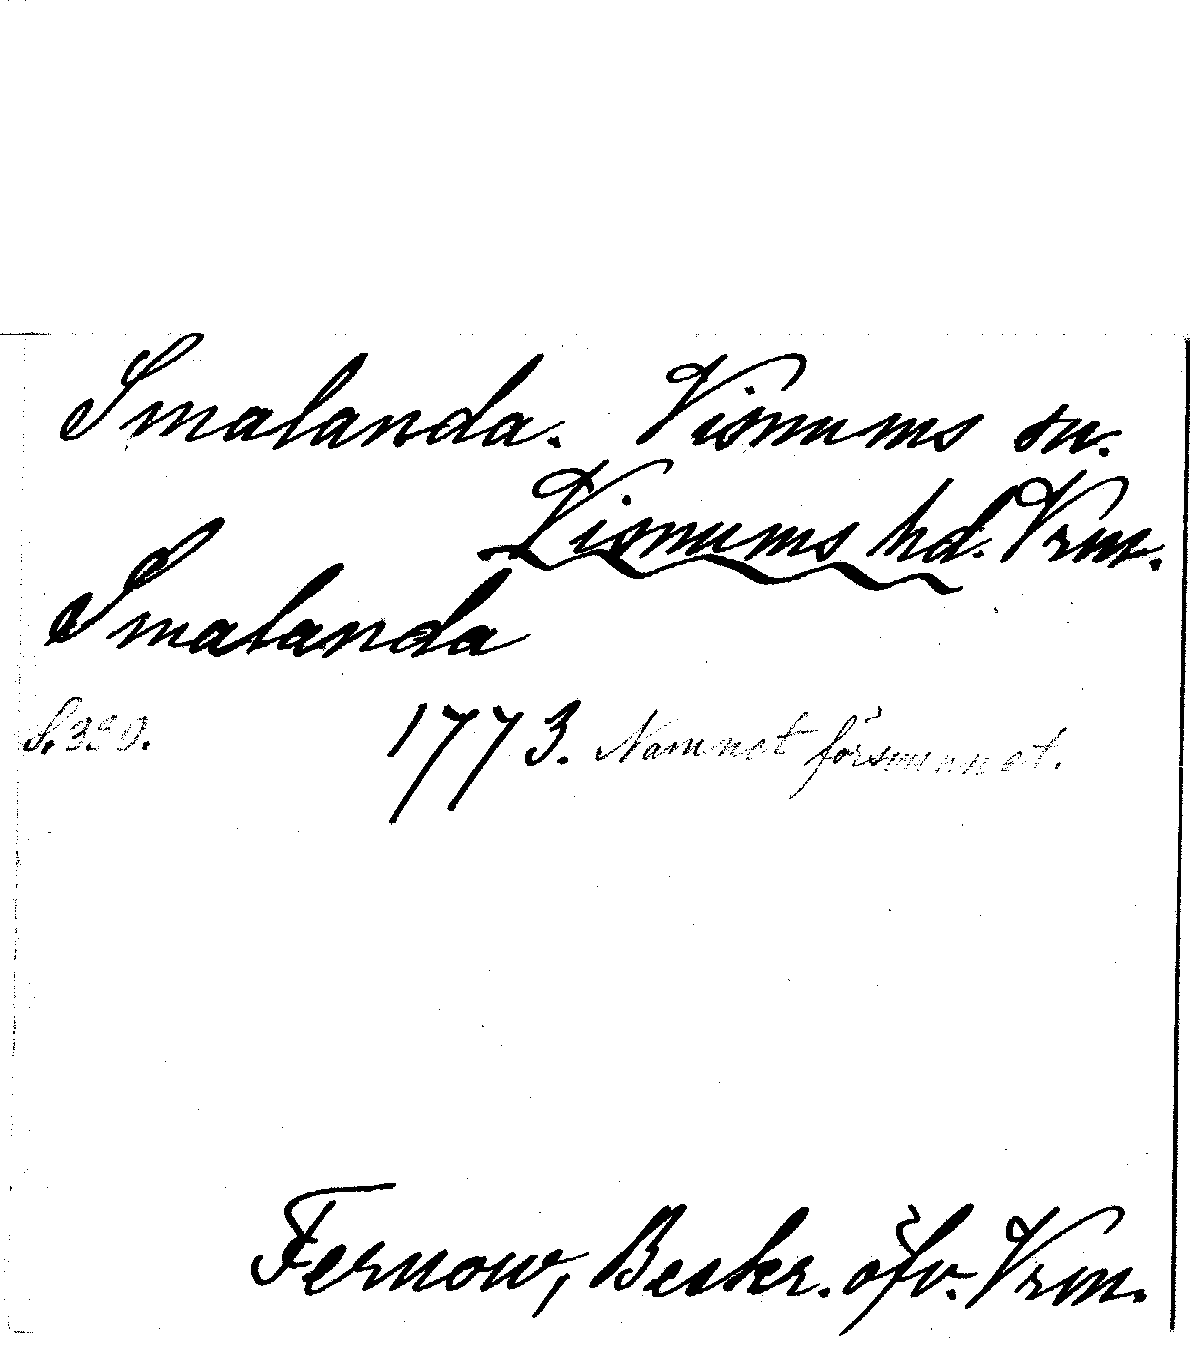 Smalanda. Visnums sn.
Visnums hd. Vrm.
Smalanda
S. 320. 1773. Namnet försvunnet.
Fernow, Beskr. öfv. Vrm.